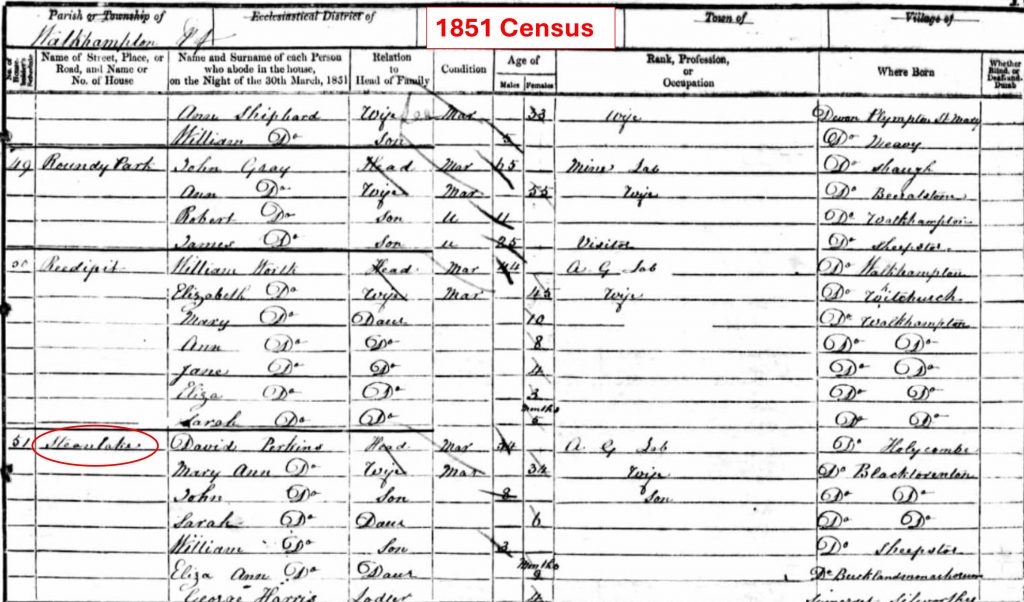 Parish or Township of Ecclesiastical District of Town of Village of
1851 Census
Walkhampton
No. of House Name of Street, Place, or Road, and Name or No. of House Name and Surname of each Person who abode in the house, on the Night of the 30th March, 1851 Relation to Head of Family Condition Age of Males Females Rank, Profession, or Occupation Where Born Whether Blind, or Deaf-and-Dumb
Ann Shiphard Wife Mar 33 Wife Devon Plympton St Mary
William Do Son 5 Do Meavy
49 Roundy Park John Gray Head Mar 65 Mine Lab Do Shaugh
Ann Do Wife Mar 55 Wife Do Beeralston
Robert Do Son U 11 Do Walkhampton
James Do Son U 25 Visitor Do Sheepstor
50 Reedipit William Worth Head Mar 44 A G Lab Do Walkhampton
Elizabeth Do Wife Mar 45 Wife Do Witchurch
Mary Do Daur 10 Do Walkhampton
Ann Do Do 8 Do Do
Jane Do Do 4 Do Do
Eliza Do Do 3 Do Do
Sarah Do Do Months 5 Do Do
51 Steanlake David Perkins Head Mar 34 A G Lab Do Holycombe
Mary Ann Do Wife Mar 34 Wife Do Blacktorenton
John Do Son 8 Son Do Do
Sarah Do Daur 6 Do Do
William Do Son 3 Do Sheepstor
Eliza Ann Do Daur Months 9 Do Bucklandmonachorum
George Harris Lodler 4 Somerset Silworthy